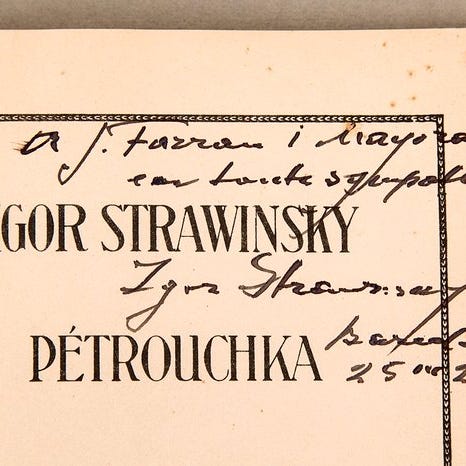 A J. Farran i Mayora
en toute sympat
IGOR STRAWINSKY
Igor Strawinsky
PÉTROUCHKA
25